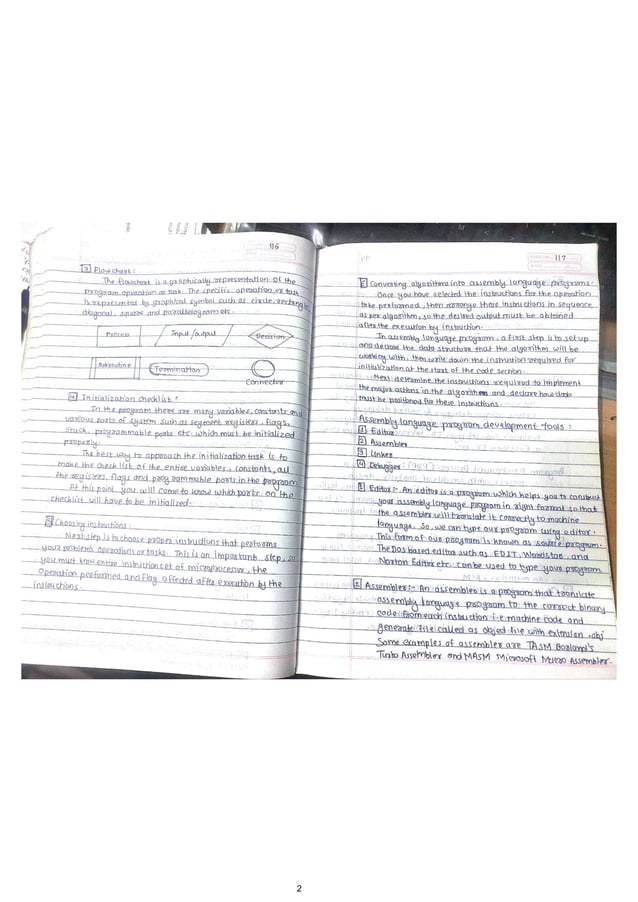 116
3 Flowchart :
The flowchart is a graphically representation of the
program operation or task. The specific operation or task
is represented by graphical symbol such as circle, rectangle,
diagonal, square and parallelogram etc.
Process
Input/output
Decision
Subroutine
Termination
Connector
4 Initialization checklist :
In the program there are many variables, constants and
various parts of system such as segment registers, flags,
stack, programmable ports etc. which must be initialized
properly.
The best way to approach the initialization task is to
make the check list of the entire variables, constants, all
the registers, flags and programmable parts in the program
At this point you will come to know which parts on the
checklist will have to be initialized.
5 Choosing instructions :
Next step is to choose proper instructions that performs
your problem's operations or tasks. This is an important step, so
you must know entire instruction set of microprocessor, the
operation performed and flag affected after execution by the
instructions.
117
6 Converting algorithms into assembly language programs :
Once you have selected the instructions for the operation
to be performed, then arrange these instructions in sequence
as per algorithm, so the desired output must be obtained
after the execution by instruction.
In assembly language program, a first step is to set up
and declare the data structure that the algorithm will be
working with, then write down the instruction required for
initialization at the start of the code section.
Next determine the instructions required to implement
the major actions in the algorithm and declare how data
must be positioned for these instructions.
Assembly language program development tools :
1 Editor
2 Assembler
3 Linker
4 Debugger
1 Editor :- An editor is a program which helps you to construct
your assembly language program in right format so that
the assembler will translate it correctly to machine
language. So, we can type our program using editor.
This form of our program is known as source program.
The Dos based editor such as EDIT, Wordstar, and
Norton Editor etc. can be used to type your program
2 Assembler :- An assembler is a program that translate
assembly language program to the correct binary
code from each instruction i.e machine code and
generate file called as object file with extension .obj
Some examples of assembler are TASM Borland's
Turbo Assembler and MASM Microsoft Macro Assembler.
2